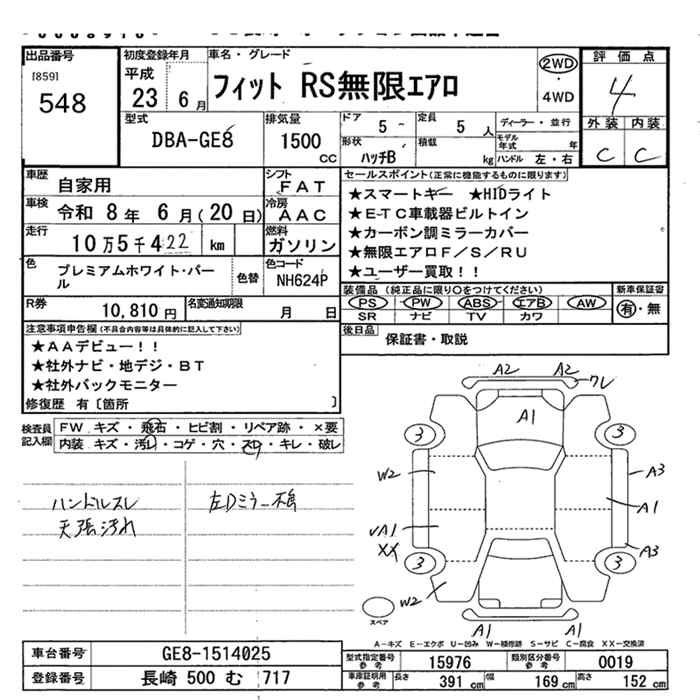 出品番号
[859]
548
初度登録年月
平成
23 6 月
車名・グレード
フィット RS無限エアロ
2WD
・
4WD
評価点
4
外装 内装
C C
型式
DBA-GE8
排気量
1500
CC
ドア
5
定員
5 人
ディーラー・並行
モデル年式 年
形状
ハッチB
積載
kg
ハンドル 左・右
車歴
自家用
シフト
FAT
車検
令和 8 年 6 月(20 日)
冷房
AAC
走行
10 万 5 千 422 km
燃料
ガソリン
色
プレミアムホワイト・パール
色替
色コード
NH624P
R券
10,810 円
名変通知期限
月 日
セールスポイント(正常に機能するものに限ります)
★スマートキー ★HIDライト
★ETC車載器ビルトイン
★カーボン調ミラーカバー
★無限エアロF/S/RU
★ユーザー買取!!
装備品(純正品に限り○をつけてください)
新車保証書
PS PW ABS エアB AW
有・無
SR ナビ TV カワ
後日品
保証書・取説
注意事項申告欄(不具合内容等は具体的に記入して下さい)
★AAデビュー!!
★社外ナビ・地デジ・BT
★社外バックモニター
修復歴 有〔箇所 〕
検査員
記入欄
FW キズ・飛石・ヒビ割・リペア跡・×要
内装 キズ・汚レ・コゲ・穴・スレ・キレ・破レ
ハンドルスレ
天張汚れ
左Dミラー不鳴
A2 A2
ワレ
A1
3 3
W2
A3
A1
√A1
XX
A3
3 3
W2
スペア
A-キズ E-エクボ U-凹み W-補修跡 S-サビ C-腐食 XX-交換済
車台番号
GE8-1514025
登録番号
長崎 500 む 717
型式指定番号
参考
15976
類別区分番号
参考
0019
車庫証明用
参考
長さ
391 cm
幅
169 cm
高さ
152 cm